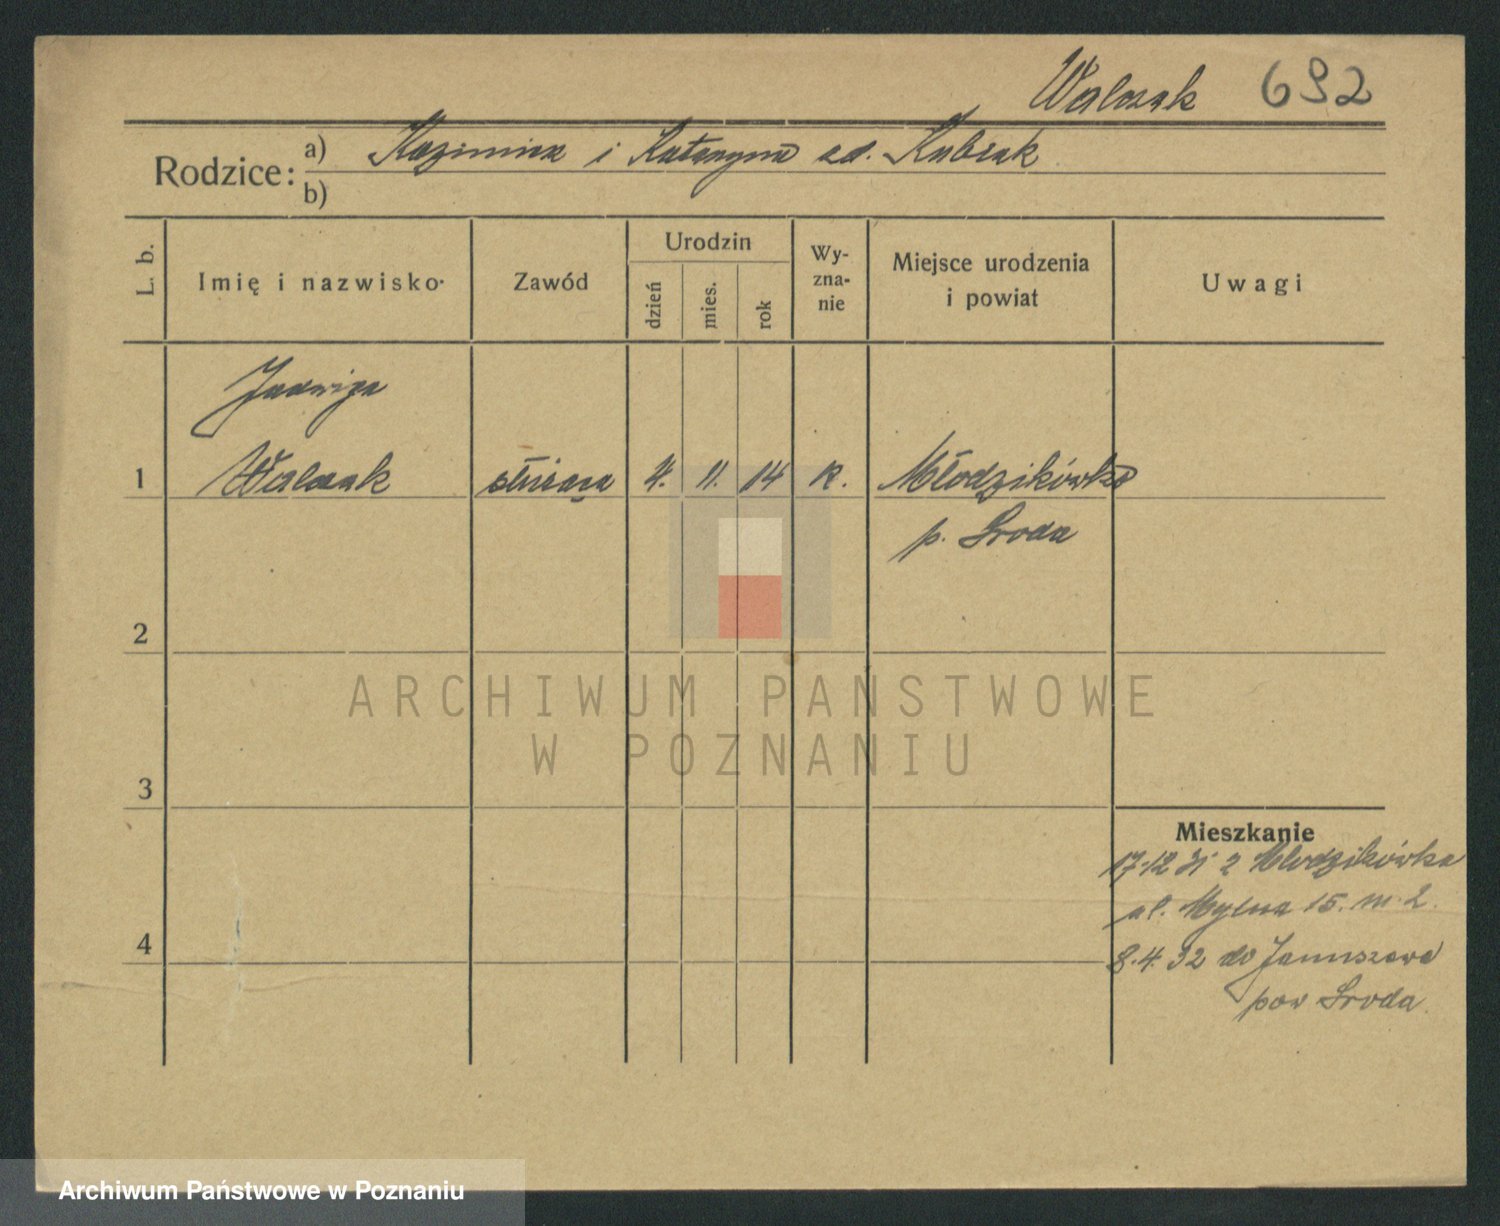 Walczak 692
Rodzice: a) Kazimierz i Katarzyna zd. Kubiak
b)
L. b.
Imię i nazwisko
Zawód
Urodzin
dzień
mies.
rok
Wy-
zna-
nie
Miejsce urodzenia
i powiat
Uwagi
Jadwiga
1 Walczak służąca 4. 11. 14 k. Młodzikówko
p. Sroda
2
ARCHIWUM PAŃSTWOWE
W POZNANIU
3
Mieszkanie
17-12 31 z Młodzikówka
ul. Mylna 15. m. 2.
4
8.4.32 do Januszewo
pow Sroda
Archiwum Państwowe w Poznaniu